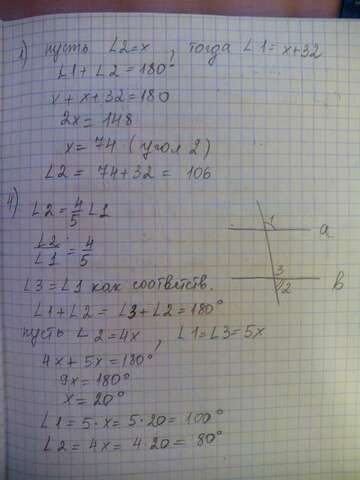 1) пусть ∠2=x, тогда ∠1=x+32
∠1+∠2=180°
x+x+32=180
2x=148
x=74 (угол 2)
∠2=74+32=106
4) ∠2=4/5∠1
∠2/∠1=4/5
∠3=∠1 как соответств.
∠1+∠2=∠3+∠2=180°
пусть ∠2=4x, ∠1=∠3=5x
4x+5x=180°
9x=180°
x=20°
∠1=5·x=5·20=100°
∠2=4x=4·20=80°
1
a
3
2
b